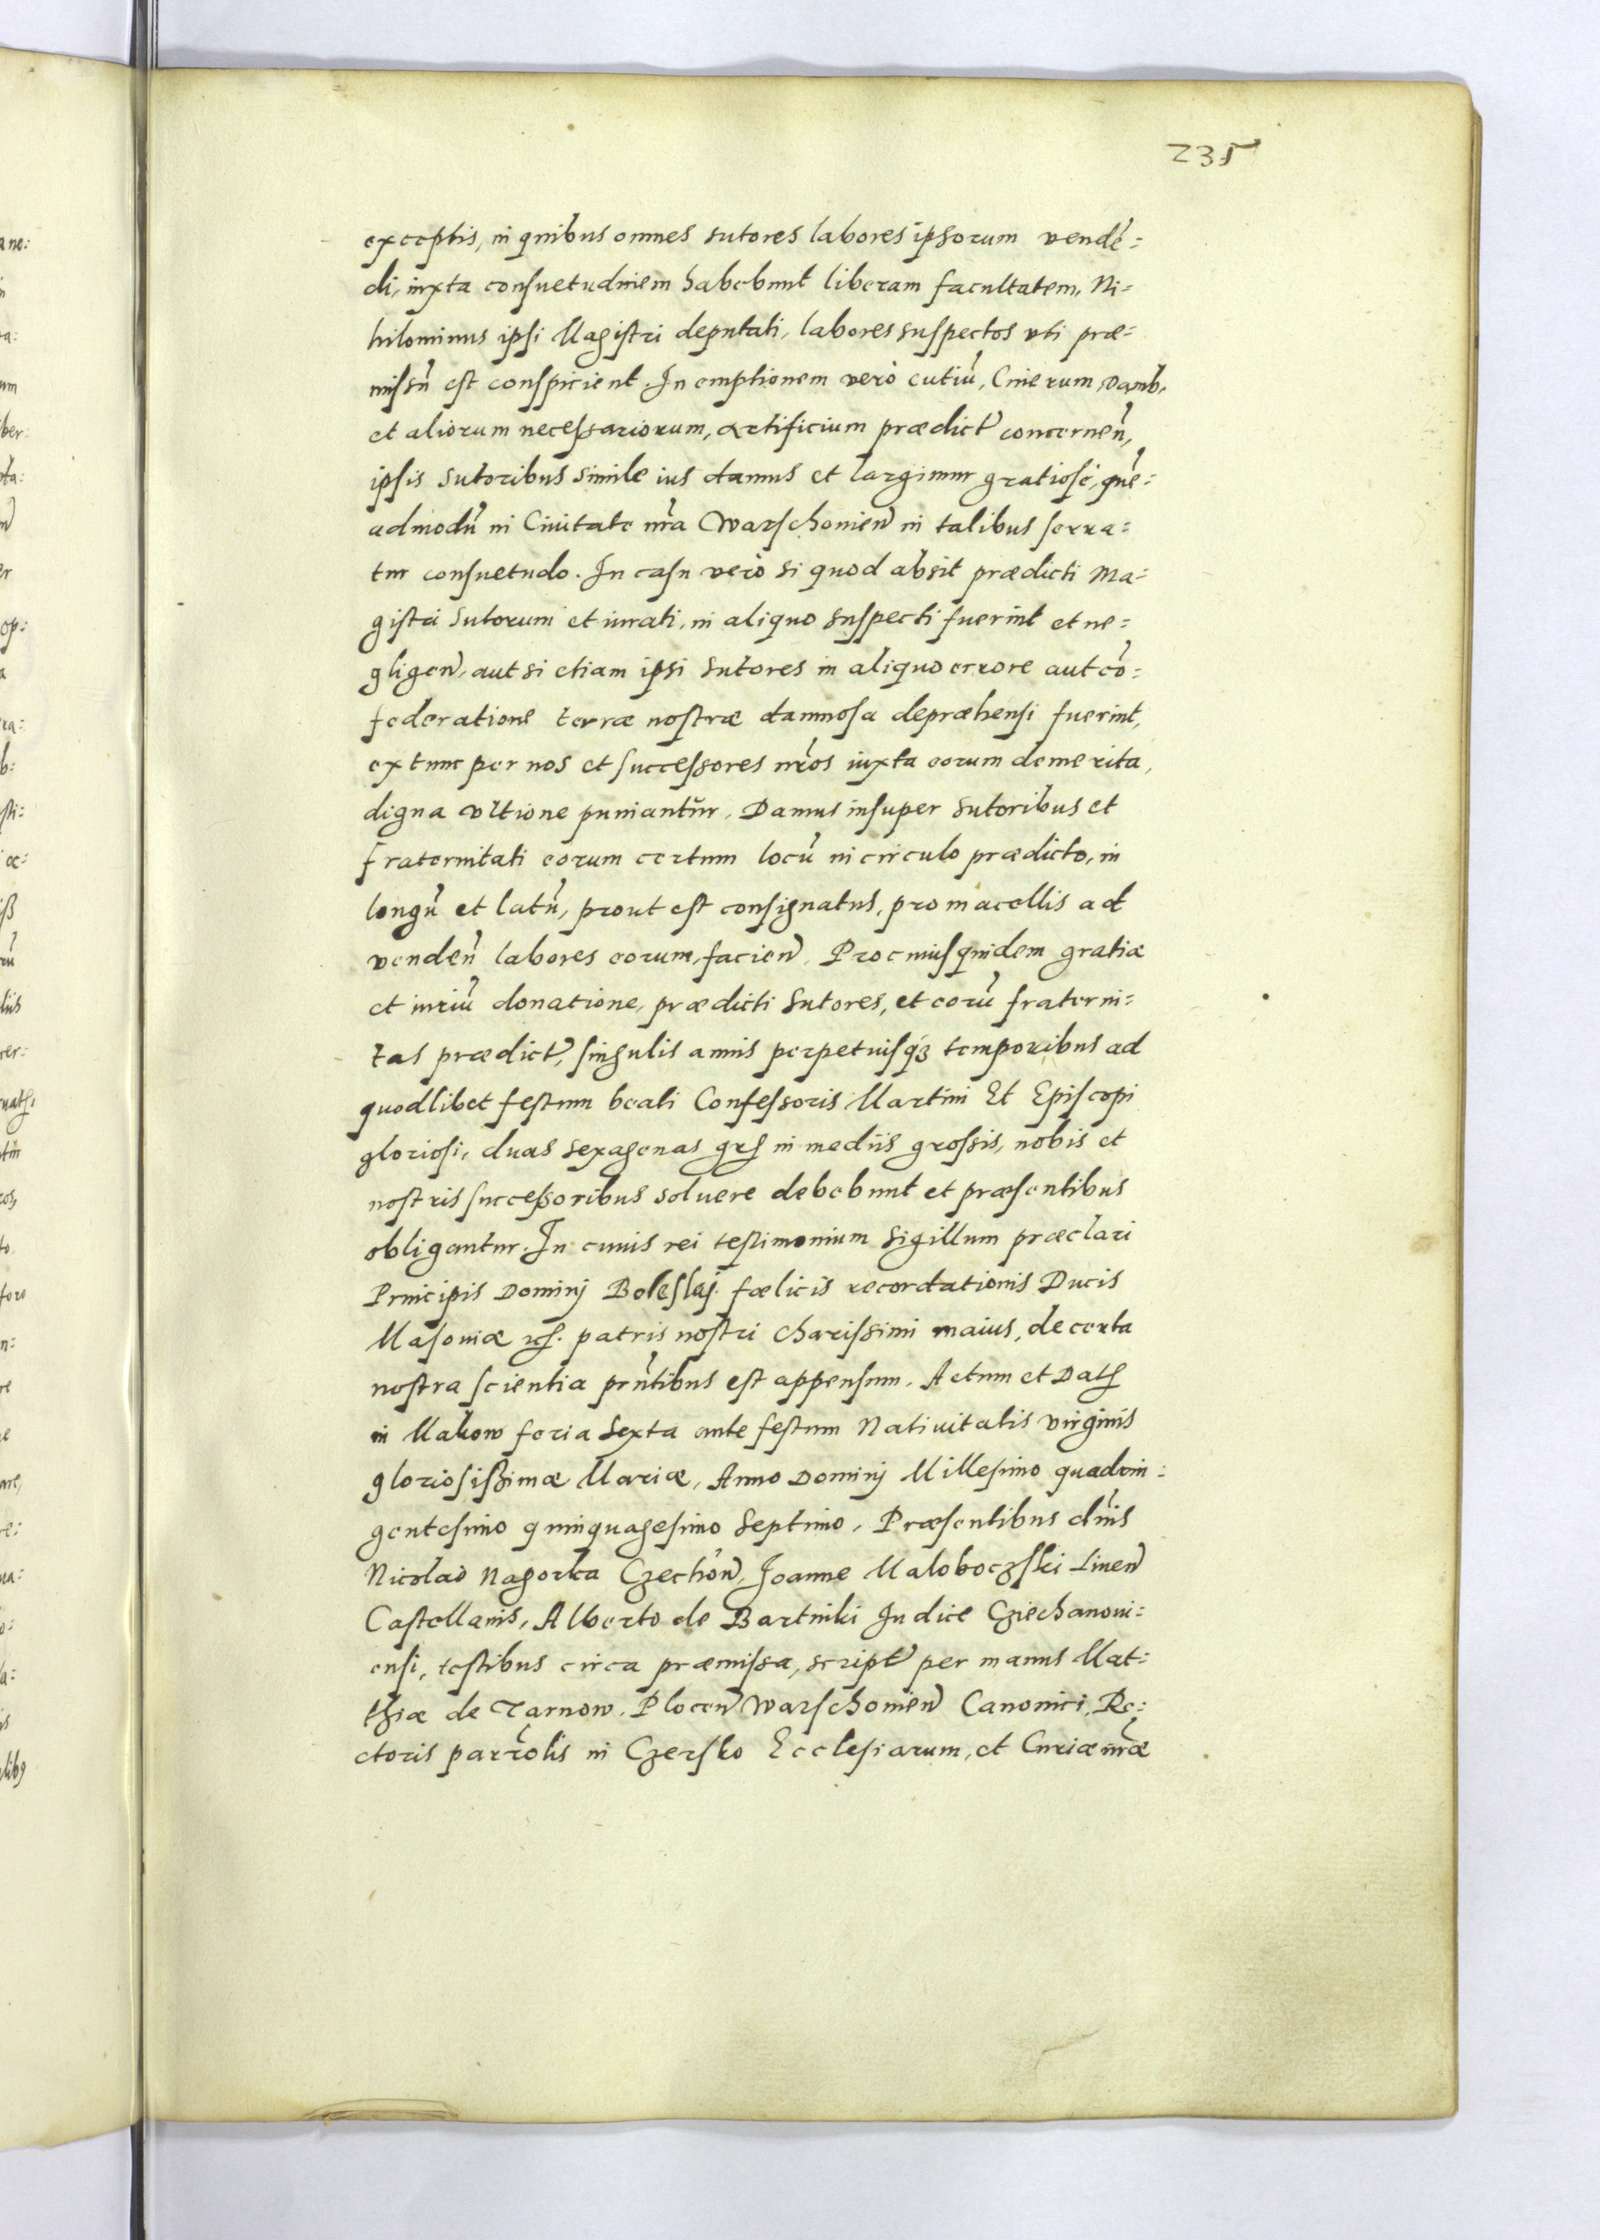 235
exceptis, in quibus omnes sutores labores ipsorum vendē=
di, iuxta consuetudinem habebunt liberam facultatem, Ni=
hilominus ipsi Magistri deputati, labores suspectos vti præ=
missū est conspicient. In emptionem verò cutiū, Cinerum, Damb,
et aliorum necessariorum, artificium prædict concernen,
ipsis sutoribus simile ius damus et largimur gratiosè, quē=
admodū in Ciuitate nr̄a Warschouien in talibus serua=
tur consuetudo. In casu verò si quod absit prædicti Ma=
gistri Sutorum et iurati, in aliquo suspecti fuerint et ne=
gligen, aut si etiam ipsi Sutores in aliquo errore aut cō=
federatione terræ nostræ damnosa depræhensi fuerint,
extunc per nos et successores nr̄os iuxta eorum demerita,
digna vltione puniantur. Damus insuper sutoribus et
fraternitati eorum certum locū in circulo prædicto, in
longū et latū, prout est consignatus, pro macellis ad
venden labores eorum, facien. Pro cuiusquidem gratiæ
et iuriū donatione, prædicti Sutores, et eorū fraterni=
tas prædict, singulis annis perpetuisq₃ temporibus ad
quodlibet festum beati Confessoris Martini Et Episcopi
gloriosi, duas sexagenas grs in mediis grossis, nobis et
nostris successoribus soluere debebunt et præsentibus
obligantur. In cuius rei testimonium Sigillum præclari
Principis Dominj Boleslaj fœlicis recordationis Ducis
Masouiæ etc. patris nostri charissimi maius, de certa
nostra scientia prn̄tibus est appensum. Actum et Dat
in Makow feria Sexta ante festum Natiuitatis virginis
gloriosissimæ Mariæ, Anno Dominj Millesimo quadrin=
gentesimo quinquagesimo Septimo. Præsentibus dn̄is
Nicolao Nagorka Czechon, Joanne Maloboczski Liuen
Castellanis, Alberto de Bartniki Iudice Cziechanoui=
ensi, testibus circa præmissa, script per manus Mat=
thiæ de Tarnow. Plocen Warschouien Canonici, Re=
ctoris parrōlis in Czersko Ecclesiarum, et Curiæ nr̄æ